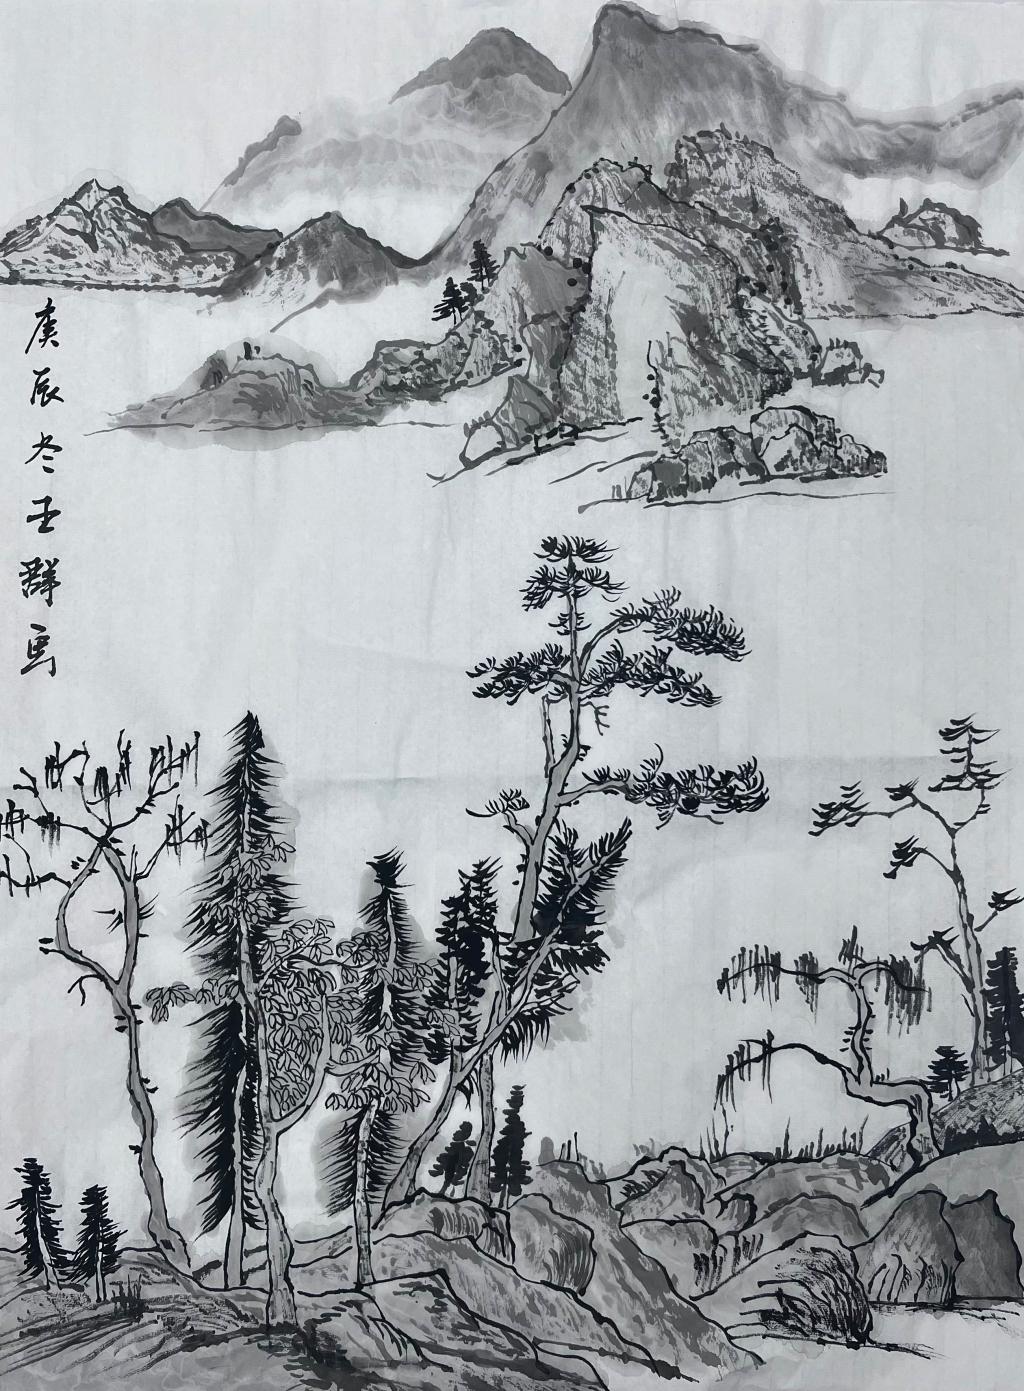 庚辰冬王群写